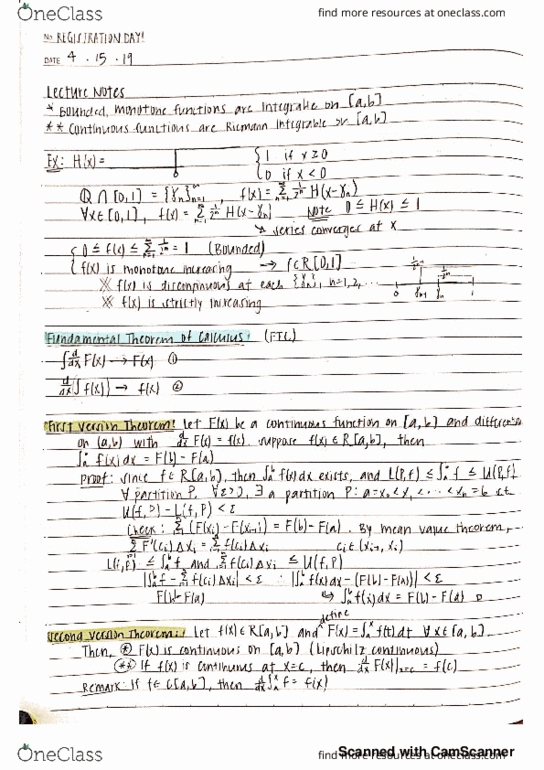 OneClass
find more resources at oneclass.com
No. REGISTRATION DAY!
DATE 4 · 15 · 19
Lecture Notes
* Bounded, monotone functions are integrable on [a,b]
** Continuous functions are Riemann Integrable on [a,b]
Ex: H(x) = { 1 if x ≥ 0
0 if x < 0
Q ∩ [0,1] = {γn}n=1, f(x) = Σ 1/2^n H(x-γn)
∀x∈[0,1], f(x) = Σ 1/2^n H(x-γn) Note 0 ≤ H(x) ≤ 1
↳ series converges at x
{ 0 ≤ f(x) ≤ Σ 1/2^n = 1 (Bounded)
f(x) is monotone increasing → f∈R[0,1]
※ f(x) is discontinuous at each n=1,2,...
※ f(x) is strictly increasing
Fundamental Theorem of Calculus: (FTC)
∫ d/dx F(x) → F(x) ①
d/dx [∫ f(x)] → f(x) ②
First Version Theorem: Let F(x) be a continuous function on [a,b] and
on (a,b) with d/dx F(x) = f(x). Suppose f(x)∈R[a,b], then
∫ₐᵇ f(x)dx = F(b) - F(a)
Proof: since f∈R[a,b], then ∫ₐᵇ f(x)dx exists, and L(P,f) ≤ ∫ₐᵇ f ≤ U(P,f)
∀ partition P. ∃ a partition P: a=x₀<x₁<···<xₙ=b st
U(f,P) - L(f,P) < ε
Check: Σ (F(xi) - F(xi-1)) = F(b) - F(a). By mean value theorem,
Σ F'(ci)Δxi = Σ f(ci)Δxi ci∈(xi-1, xi)
≤ ∫ₐᵇ f and Σ f(ci)Δxi ≤ U(f,P)
|∫ₐᵇ f - Σ f(ci)Δxi| < ε ∴ |∫ₐᵇ f(x)dx - (F(b) - F(a))| < ε
F(b) - F(a) ↳ ∫ₐᵇ f(x)dx = F(b) - F(a) □
define
Second Version Theorem: Let f(x)∈R[a,b] and F(x) = ∫ₐˣ f(t)dt ∀x∈[a,b].
Then, (*) F(x) is continuous on [a,b] (Lipschitz continuous)
(**) If f(x) is continuous at x=c, then d/dx F(x)|x=c = f(c)
Remark: If f∈C[a,b], then d/dx ∫ₐˣ f = f(x)
Scanned with CamScanner
OneClass
find more resources at oneclass.com